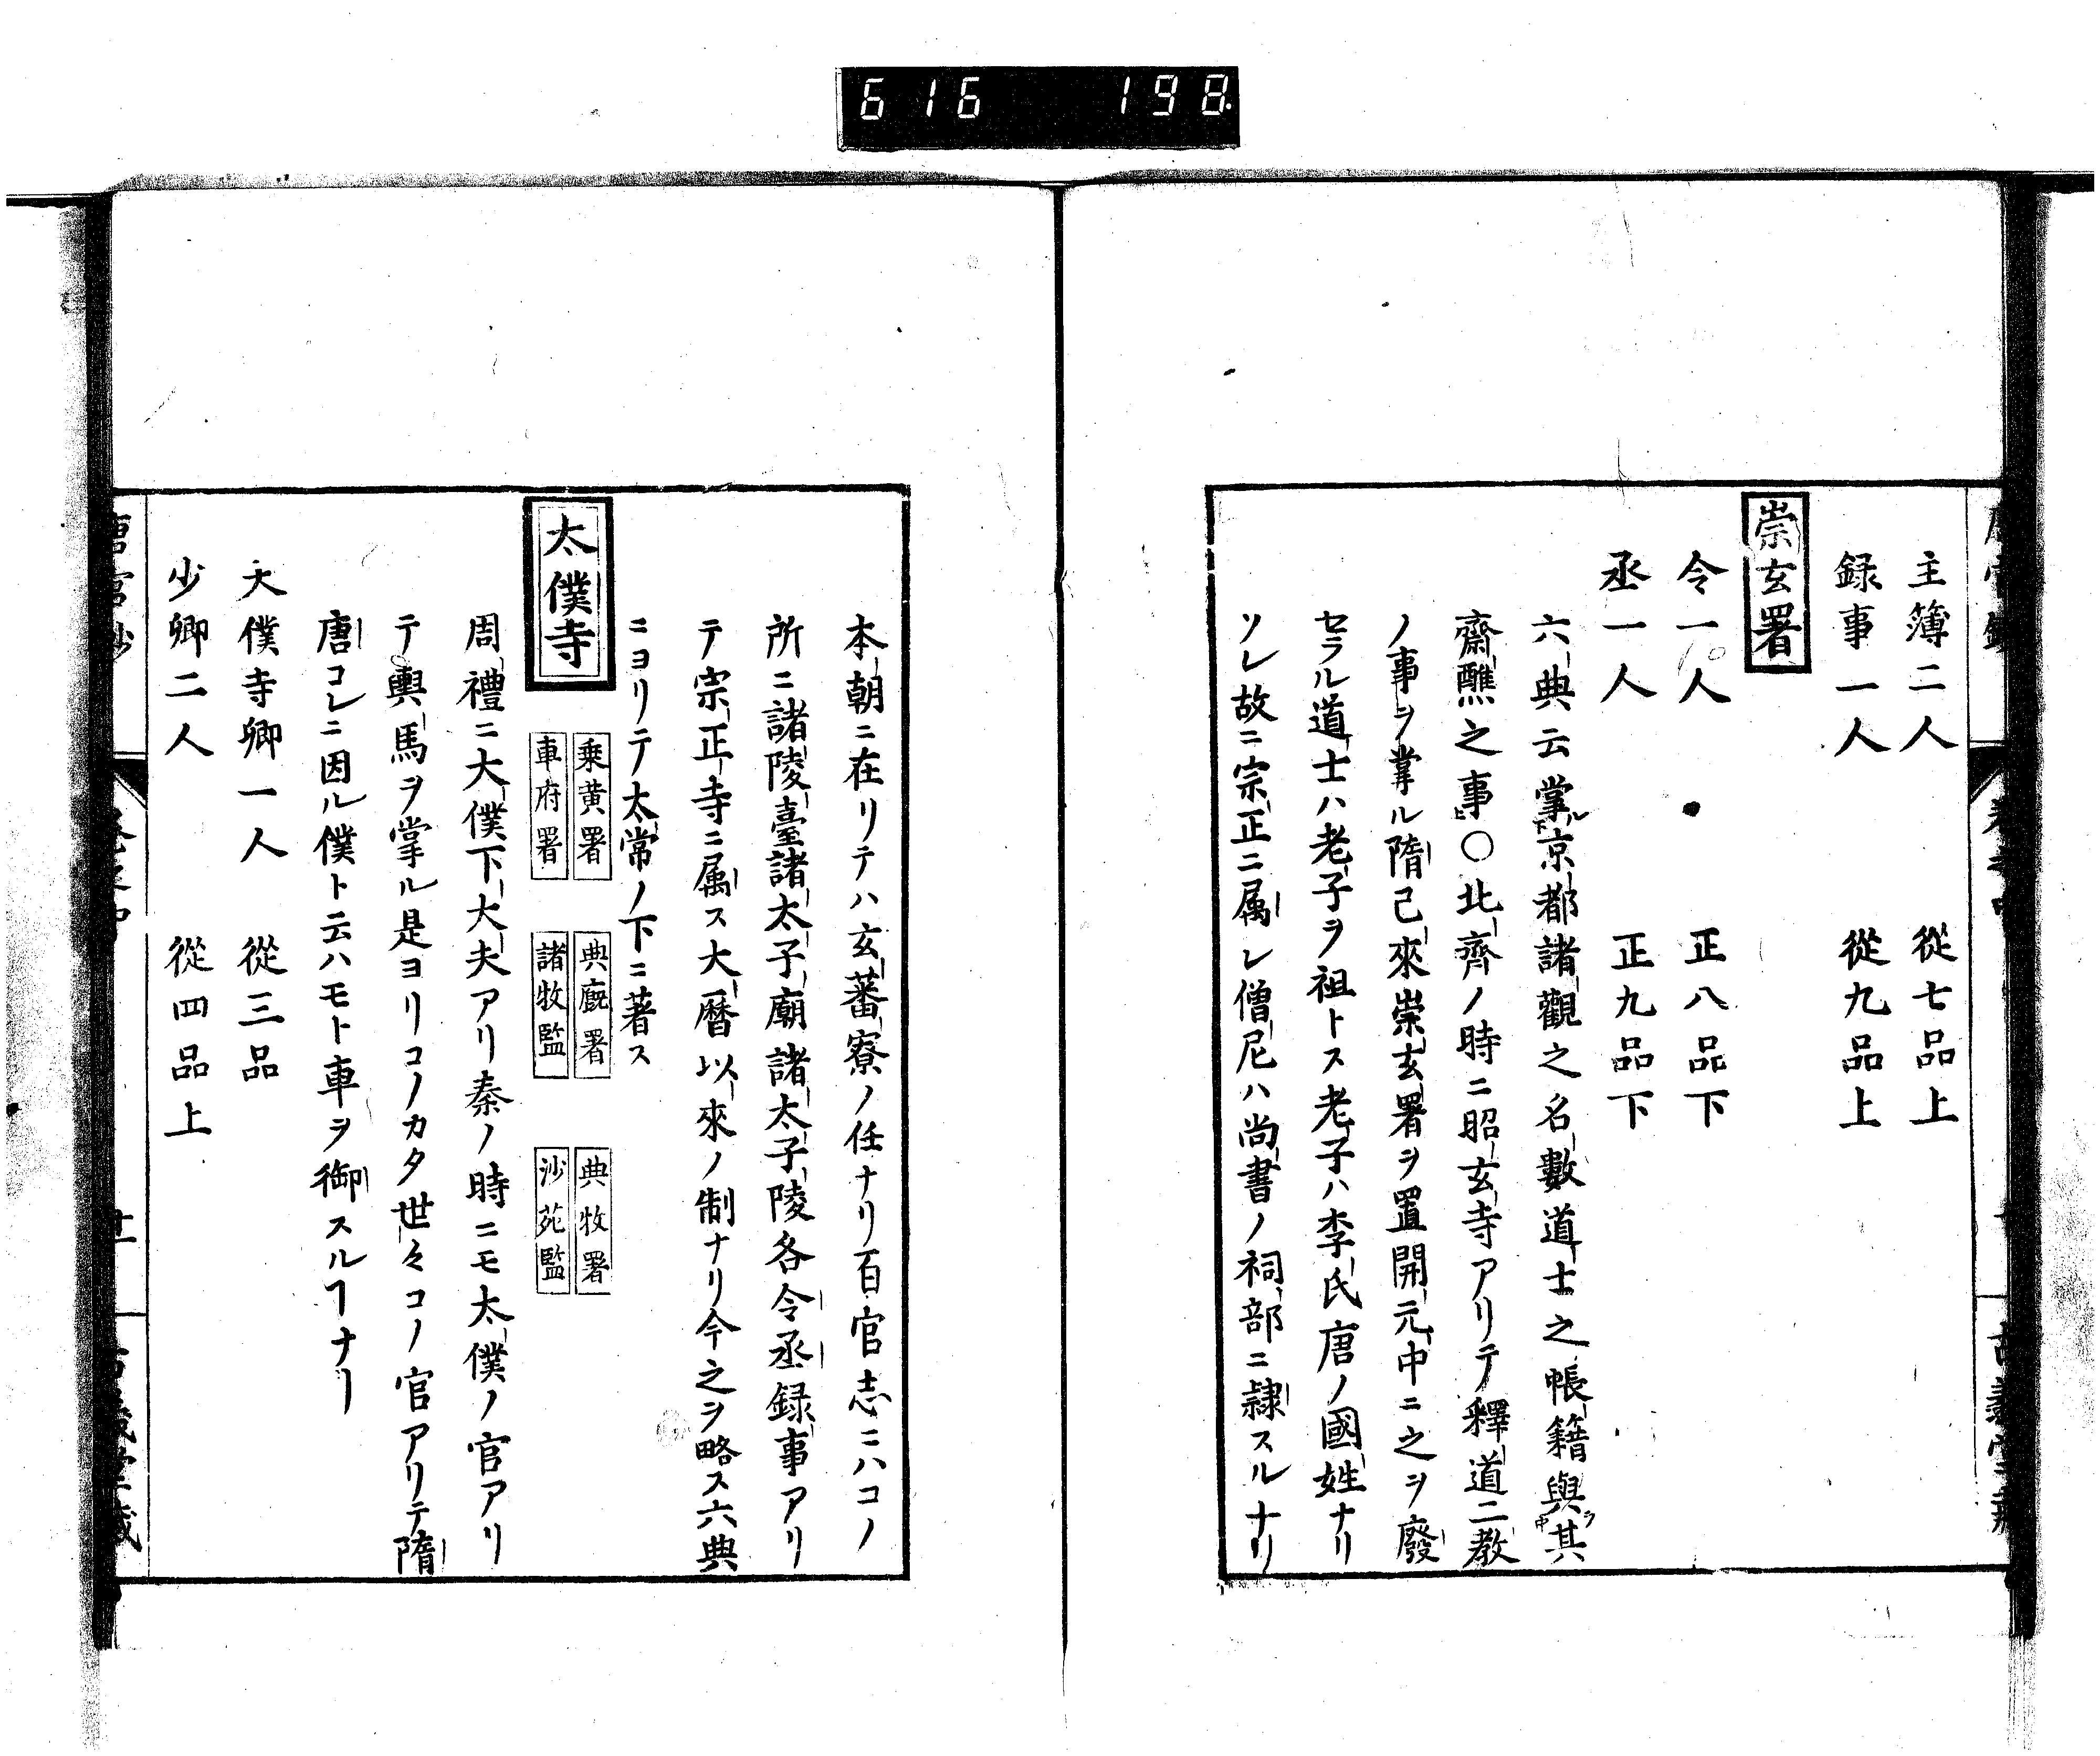 616 198
主簿二人 從七品上
録事一人 從九品上
崇玄署
令一人 正八品下
丞一人 正九品下
六典云掌京都諸觀之名數道士之帳籍與其
齋醮之事〇北齊ノ時ニ昭玄寺アリテ釋道二教
ノ事ヲ掌ル隋已來崇玄署ヲ置開元中ニ之ヲ廢
セラル道士ハ老子ヲ祖トス老子ハ李氏唐ノ國姓ナリ
ソレ故ニ宗正ニ属レ僧尼ハ尚書ノ祠部ニ隷スルナリ
本朝ニ在リテハ玄蕃寮ノ任ナリ百官志ニハコノ
所ニ諸陵臺諸太子廟諸太子陵各令丞録事アリ
テ宗正寺ニ属ス大暦以來ノ制ナリ今之ヲ略ス六典
ニヨリテ太常ノ下ニ著ス
太僕寺
乗黄署 典廐署 典牧署
車府署 諸牧監 沙苑監
周禮ニ大僕下大夫アリ秦ノ時ニモ太僕ノ官アリ
テ輿馬ヲ掌ル是ヨリコノカタ世々コノ官アリテ隋
唐コレニ因ル僕ト云ハモト車ヲ御スルヿナリ
大僕寺卿一人 從三品
少卿二人 從四品上